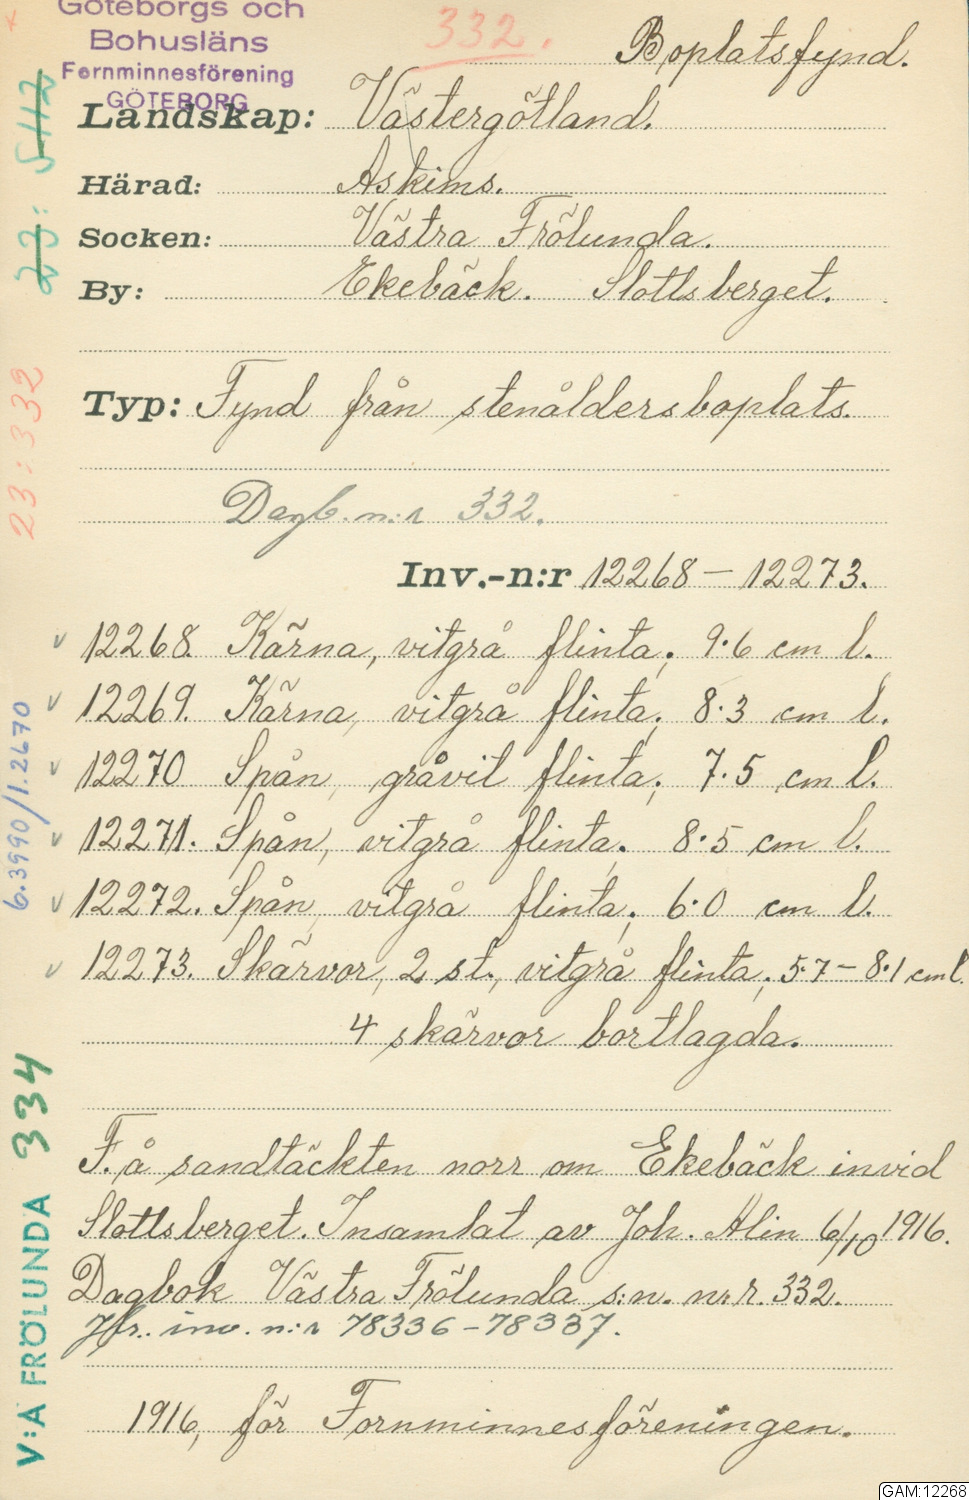 Göteborgs och
Bohusläns
Fornminnesförening
GÖTEBORG
332.
Boplatsfynd.
Landskap: Västergötland.
Härad: Askims.
Socken: Västra Frölunda.
By: Ekebäck. Slottsberget.
Typ: Fynd från stenåldersboplats.
Dagb. n:r 332.
Inv.-n:r 12268 – 12273.
v 12268. Kärna, vitgrå flinta; 9·6 cm l.
v 12269. Kärna, vitgrå flinta; 8·3 cm l.
v 12270 Spån, gråvit flinta; 7·5 cm l.
v 12271. Spån, vitgrå flinta; 8·5 cm l.
v 12272. Spån, vitgrå flinta; 6·0 cm l.
v 12273. Skärvor, 2 st., vitgrå flinta; 5·7 – 8·1 cm l.
4 skärvor bortlagda.
F. å sandtäckten norr om Ekebäck invid
Slottsberget. Insamlat av Joh. Alin 6/10 1916.
Dagbok Västra Frölunda s:n. n:r. 332.
Jfr. inv. n:r 78336 – 78337.
1916, för Fornminnesföreningen.
23: 5112
23:332
6.3990/1.2670
V:A FRÖLUNDA 334
GAM:12268